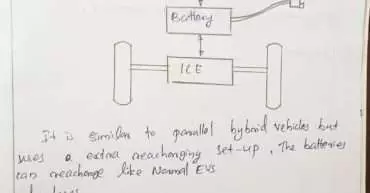 Battery
ICE
It is similar to parallel hybrid vehicles but
uses a extra reacharging set-up. The batteries
can reacharge like Normal EVS